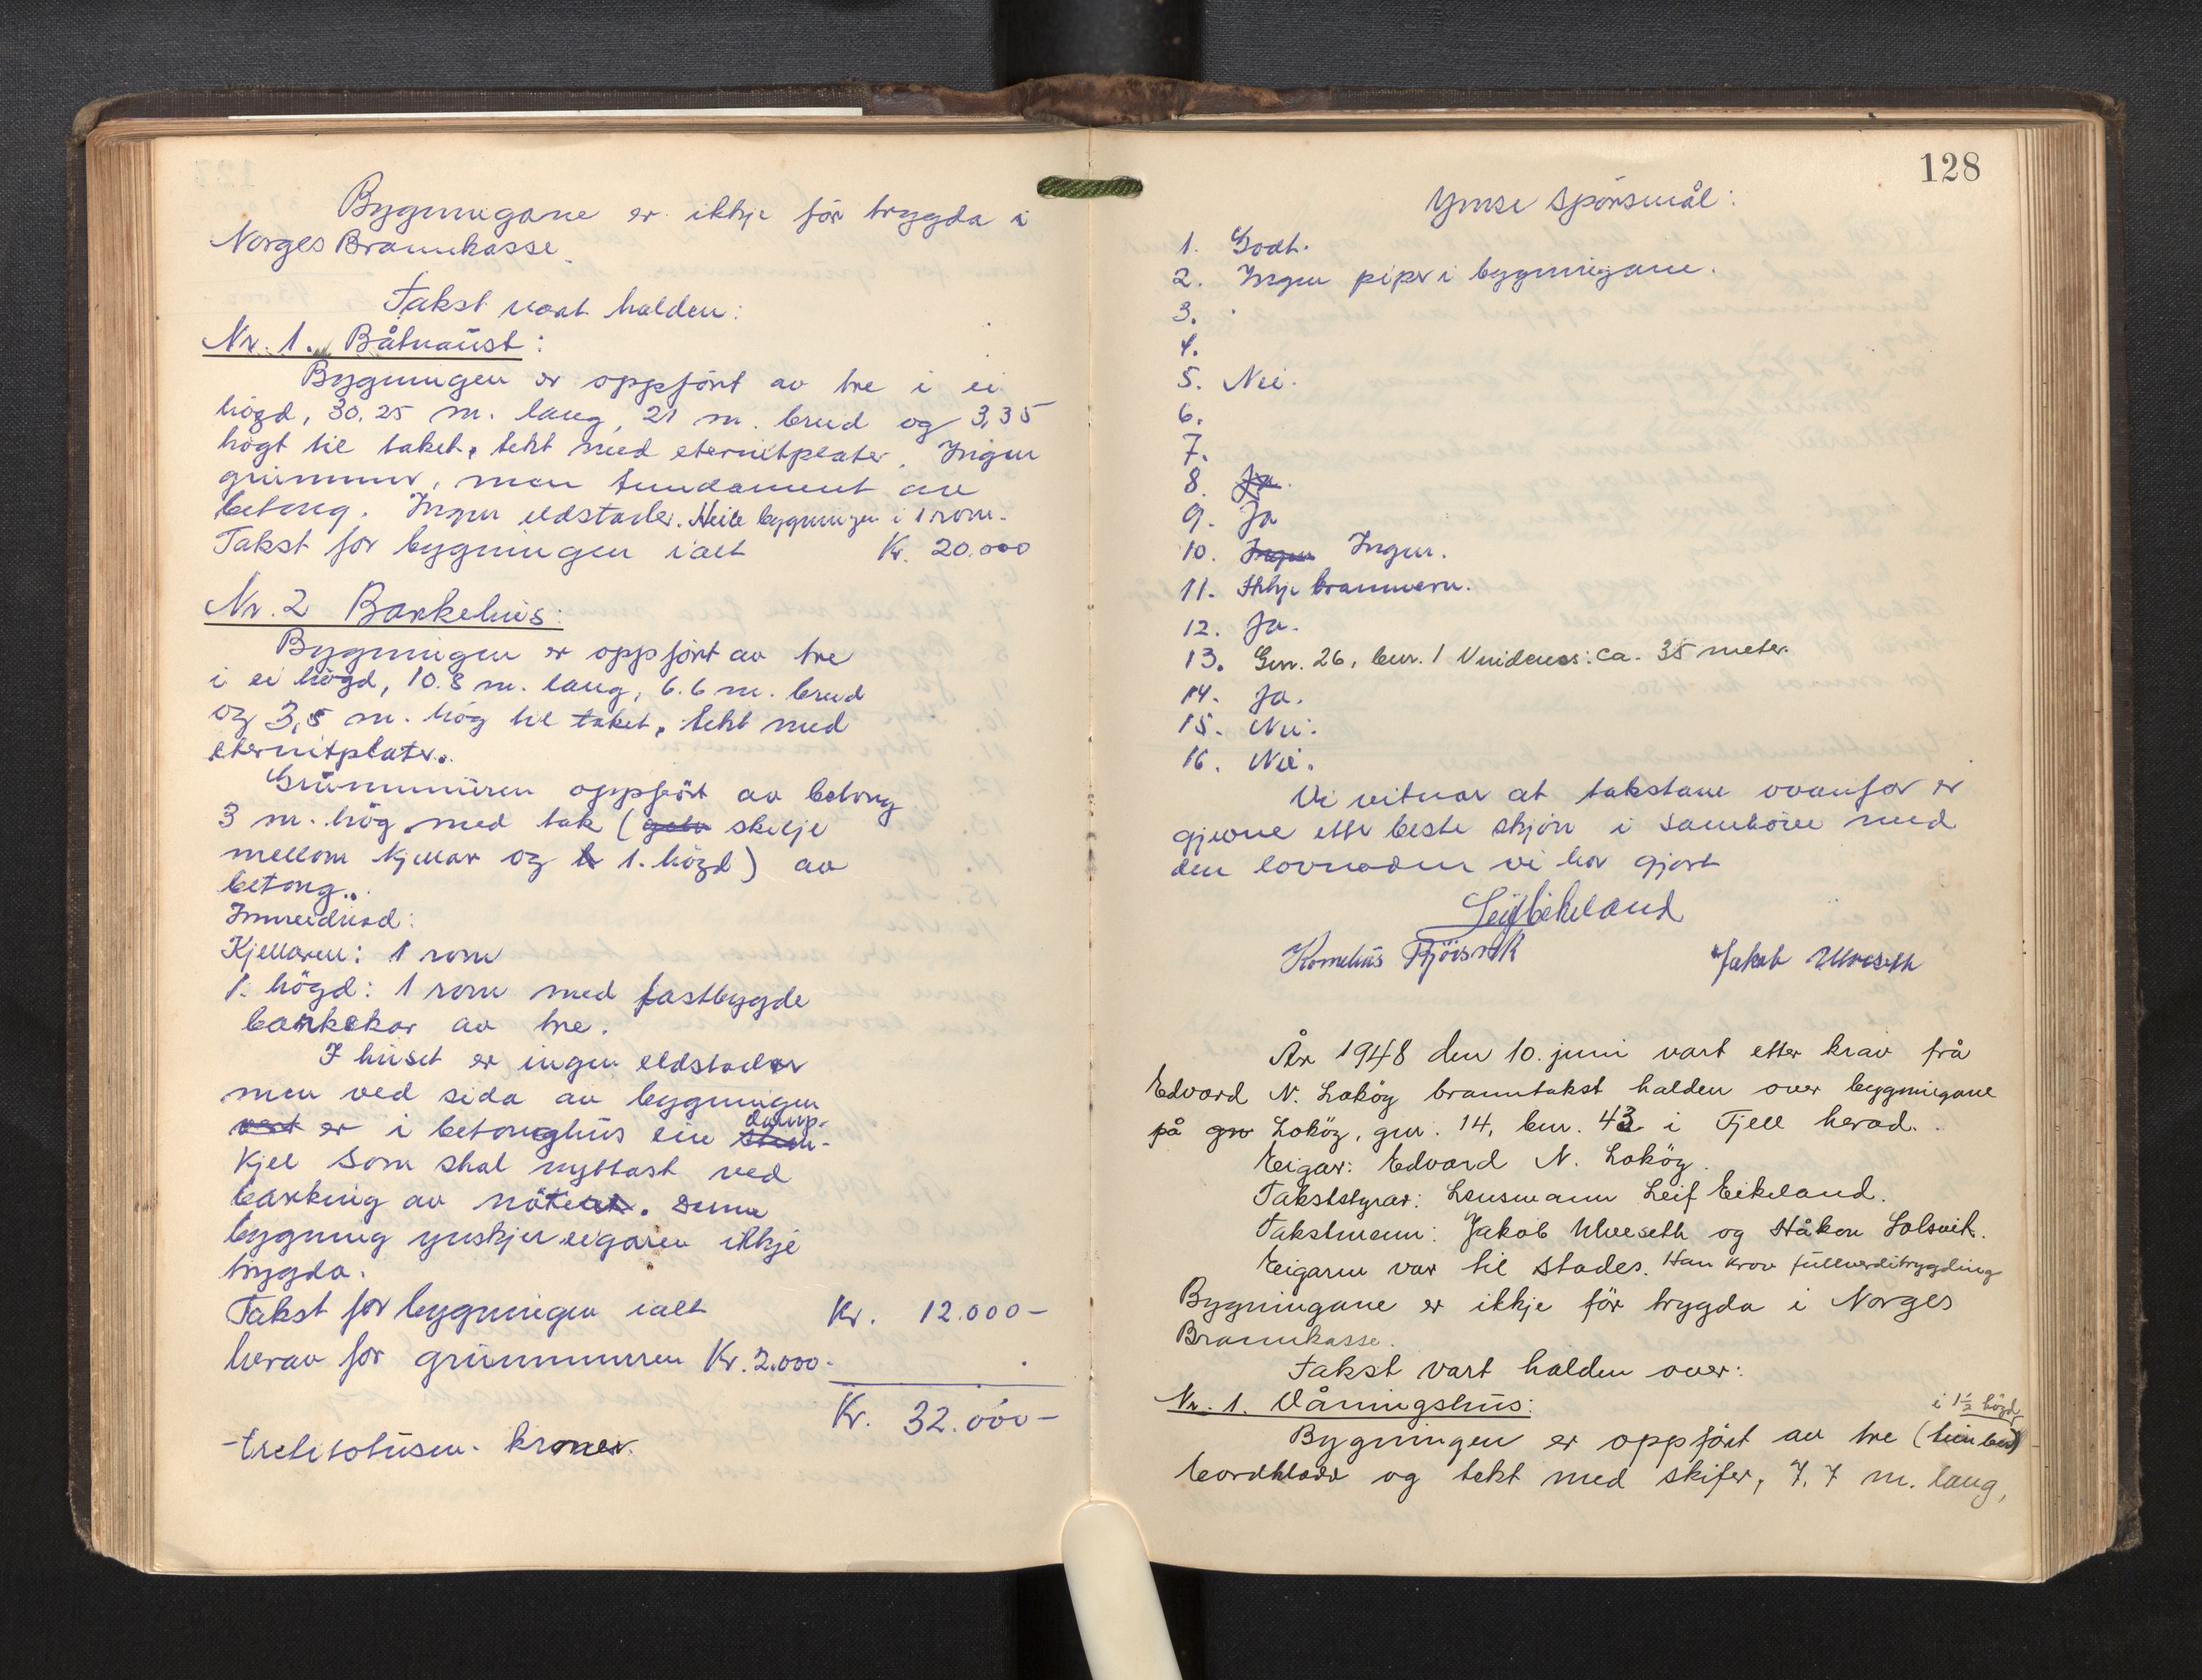 Bygningane er ikkje för trygda i
Norges Brannkasse.
Takst vart halden:
Nr. 1. Båtnaust:
Bygningen er oppfört av tre i ei
högd, 30.25 m. lang, 21 m. breid og 3,35
högt til taket, tekt med eternitplater. Ingen
grunnmur, men fundament av
betong. Ingen eldstader. Heile bygningen i 1 rom.
Takst for bygningen ialt Kr. 20.000
Nr. 2 Barkehus:
Bygningen er oppfört av tre
i ei högd, 10.8 m. lang, 6.6 m. breid
og 3,5 m. hög til taket, tekt med
eternitplater.
Grunnmuren oppfört av betong
3 m. hög med tak (golv skilje
mellom kjellar og h 1. högd) av
betong.
Innreidnad:
Kjellaren: 1 rom
1. högd: 1 rom med fastbygde
barkekar av tre.
I huset er ingen eldstader
men ved sida av bygningen
vert er i betonghus ein steam- damp-
kjel som skal nyttast ved
barking av nöter. Denne
bygning ynskjer eigaren ikkje
trygda.
Takst for bygningen ialt Kr. 12.000-
herav for grunnmuren Kr. 2.000.-
Kr. 32.000-
-trettitotusen- kroner.
128
Ymse spörsmål:
1. Godt.
2. Ingen piper i bygningane.
3.
4.
5. Nei.
6.
7.
8. Ja.
9. Ja
10. Ingen Ingen.
11. Ikkje brannvern.
12. Ja.
13. Gnr. 26, bnr. 1 Vindenes: ca. 35 meter.
14. Ja.
15. Nei.
16. Nei.
Vi vitnar at takstane ovanfor er
gjevne etter beste skjön i samhöve med
den lovnaden vi har gjort
Leif Eikeland
Kornelius Tjörsvik Jakob Ulveseth
År 1948 den 10. juni vart etter krav frå
Edvard N. Loköy branntakst halden over bygningane
på gnr Loköy, gnr. 14, bnr. 43 i Fjell herad.
Eigar: Edvard N. Loköy.
Takststyrar: Lensmann Leif Eikeland.
Takstmenn: Jakob Ulveseth og Håkon Solsvik.
Eigaren var til stades. Han krov fullverditrygding
Bygningane er ikkje för trygda i Norges
Brannkasse.
Takst vart halden over:
Nr. 1. Våningshus:
i 1½ högd
Bygningen er oppfört av tre (timber)
bordkledd og tekt med skifer, 7,7 m. lang,